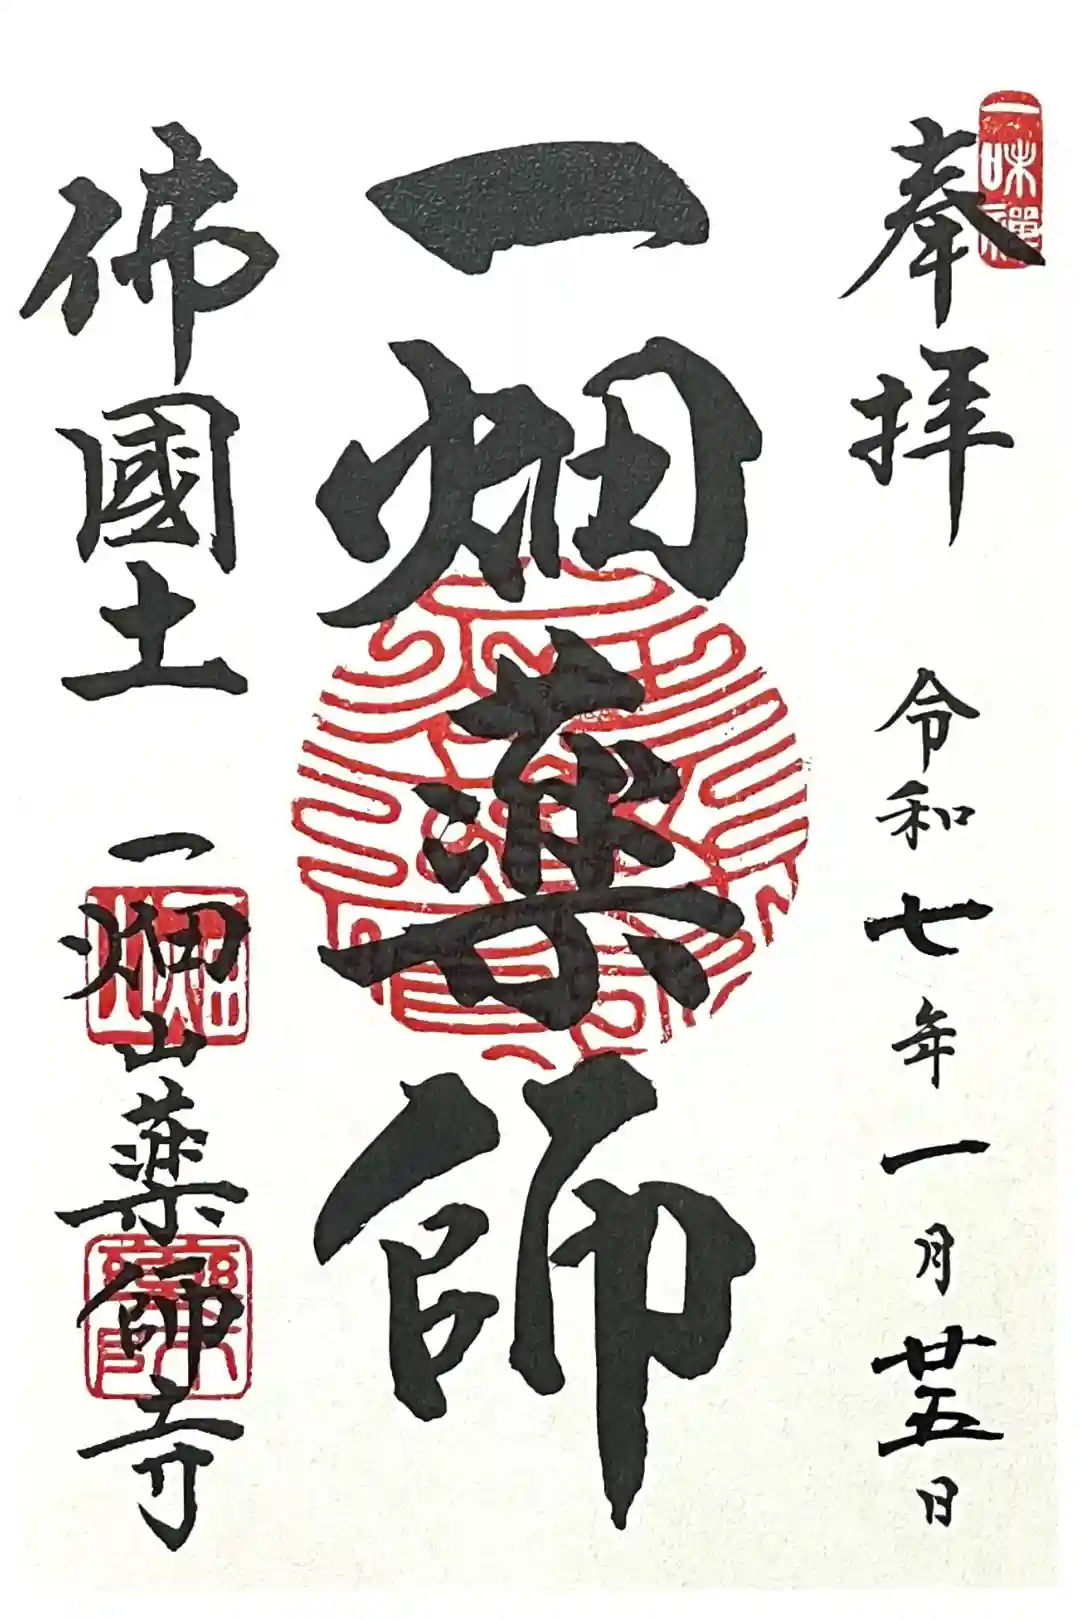 奉拝
一味禅
令和七年一月廿五日
一畑薬師
佛國土
一畑山薬師寺